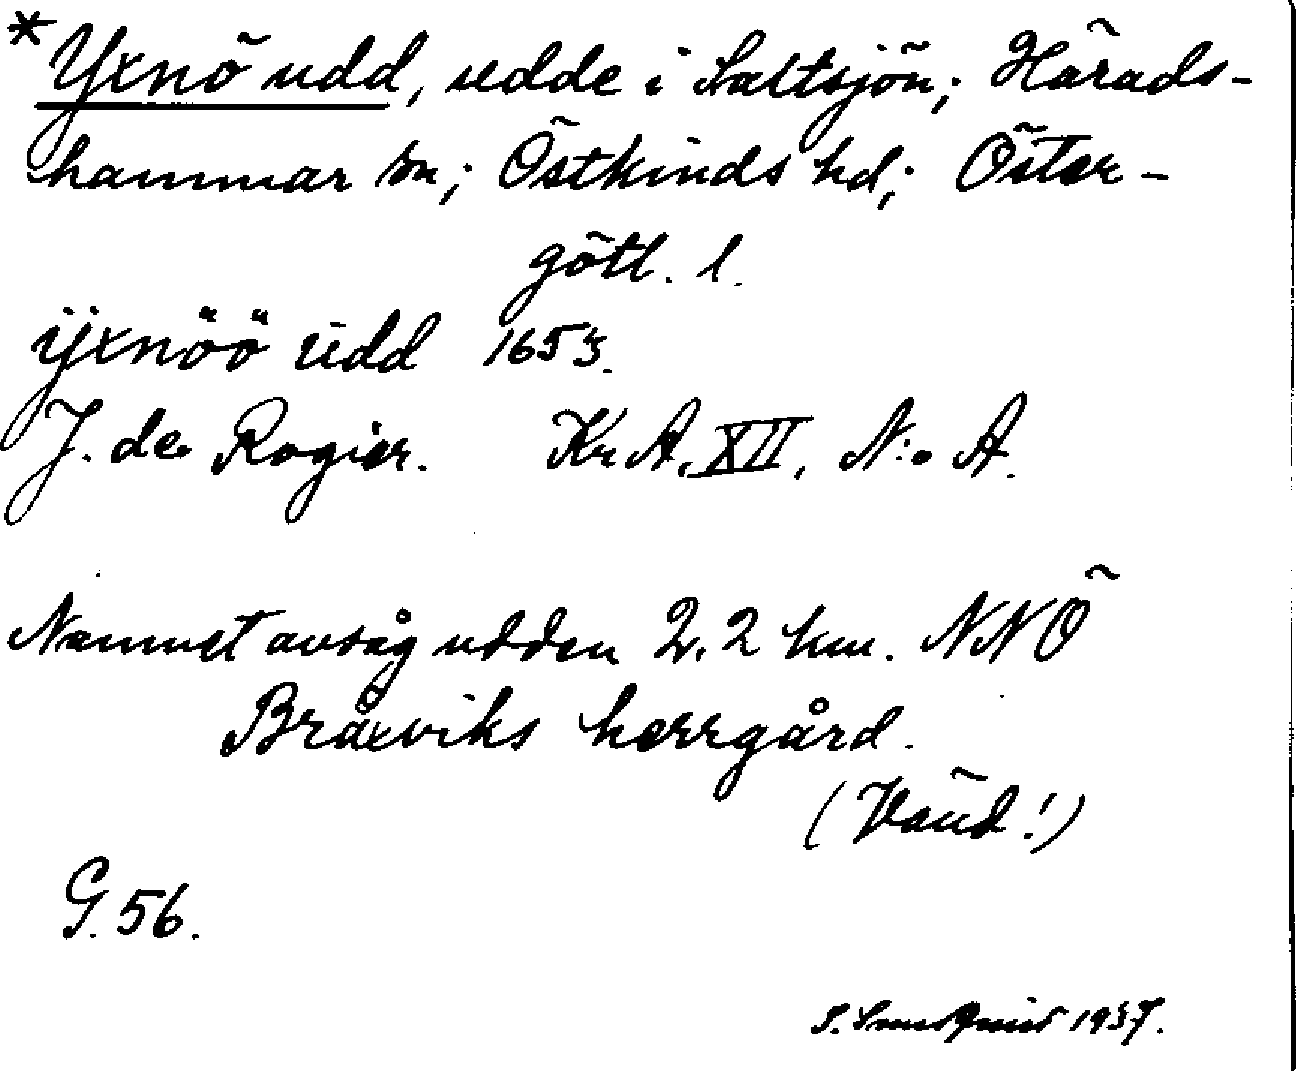 *Yxnö udd, udde i Saltsjön; Härads-
hammar sn; Östkinds hd; Öster-
götl. l.
ÿxnöö udd 1653.
J. de Rogier. Kr A, XII, N:o A.
Namnet avsåg udden 2,2 km. NNÖ
Bråxviks herrgård.
(Vänd!)
G. 56.
S. 1937.